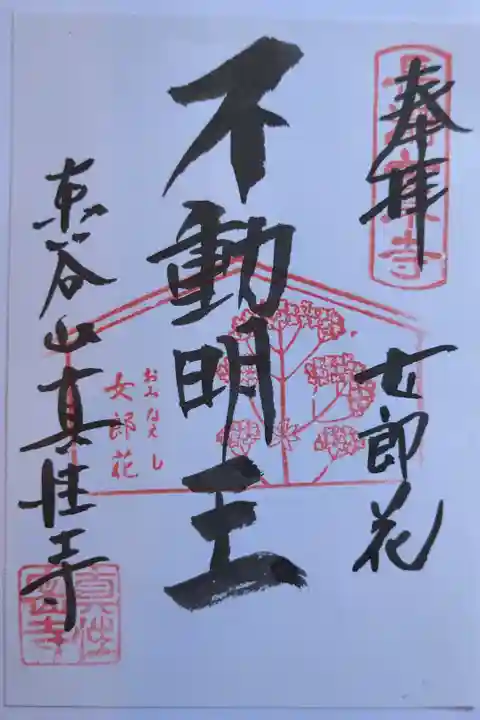 奉拝
女郎花
不動明王
おみなえし
女郎花
東谷山真性寺
真性
寺